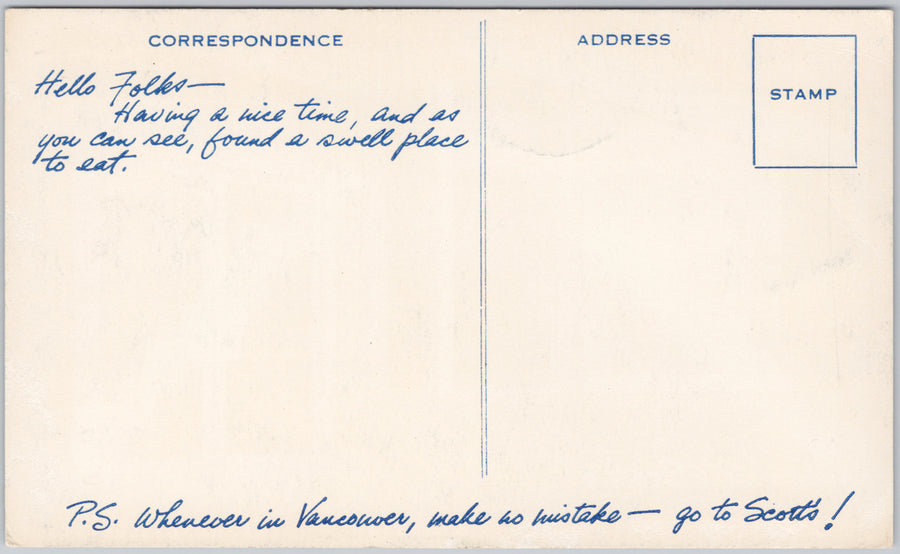 CORRESPONDENCE
Hello Folks—
Having a nice time, and as
you can see, found a swell place
to eat.
ADDRESS
STAMP
P.S. Whenever in Vancouver, make no mistake — go to Scott's!